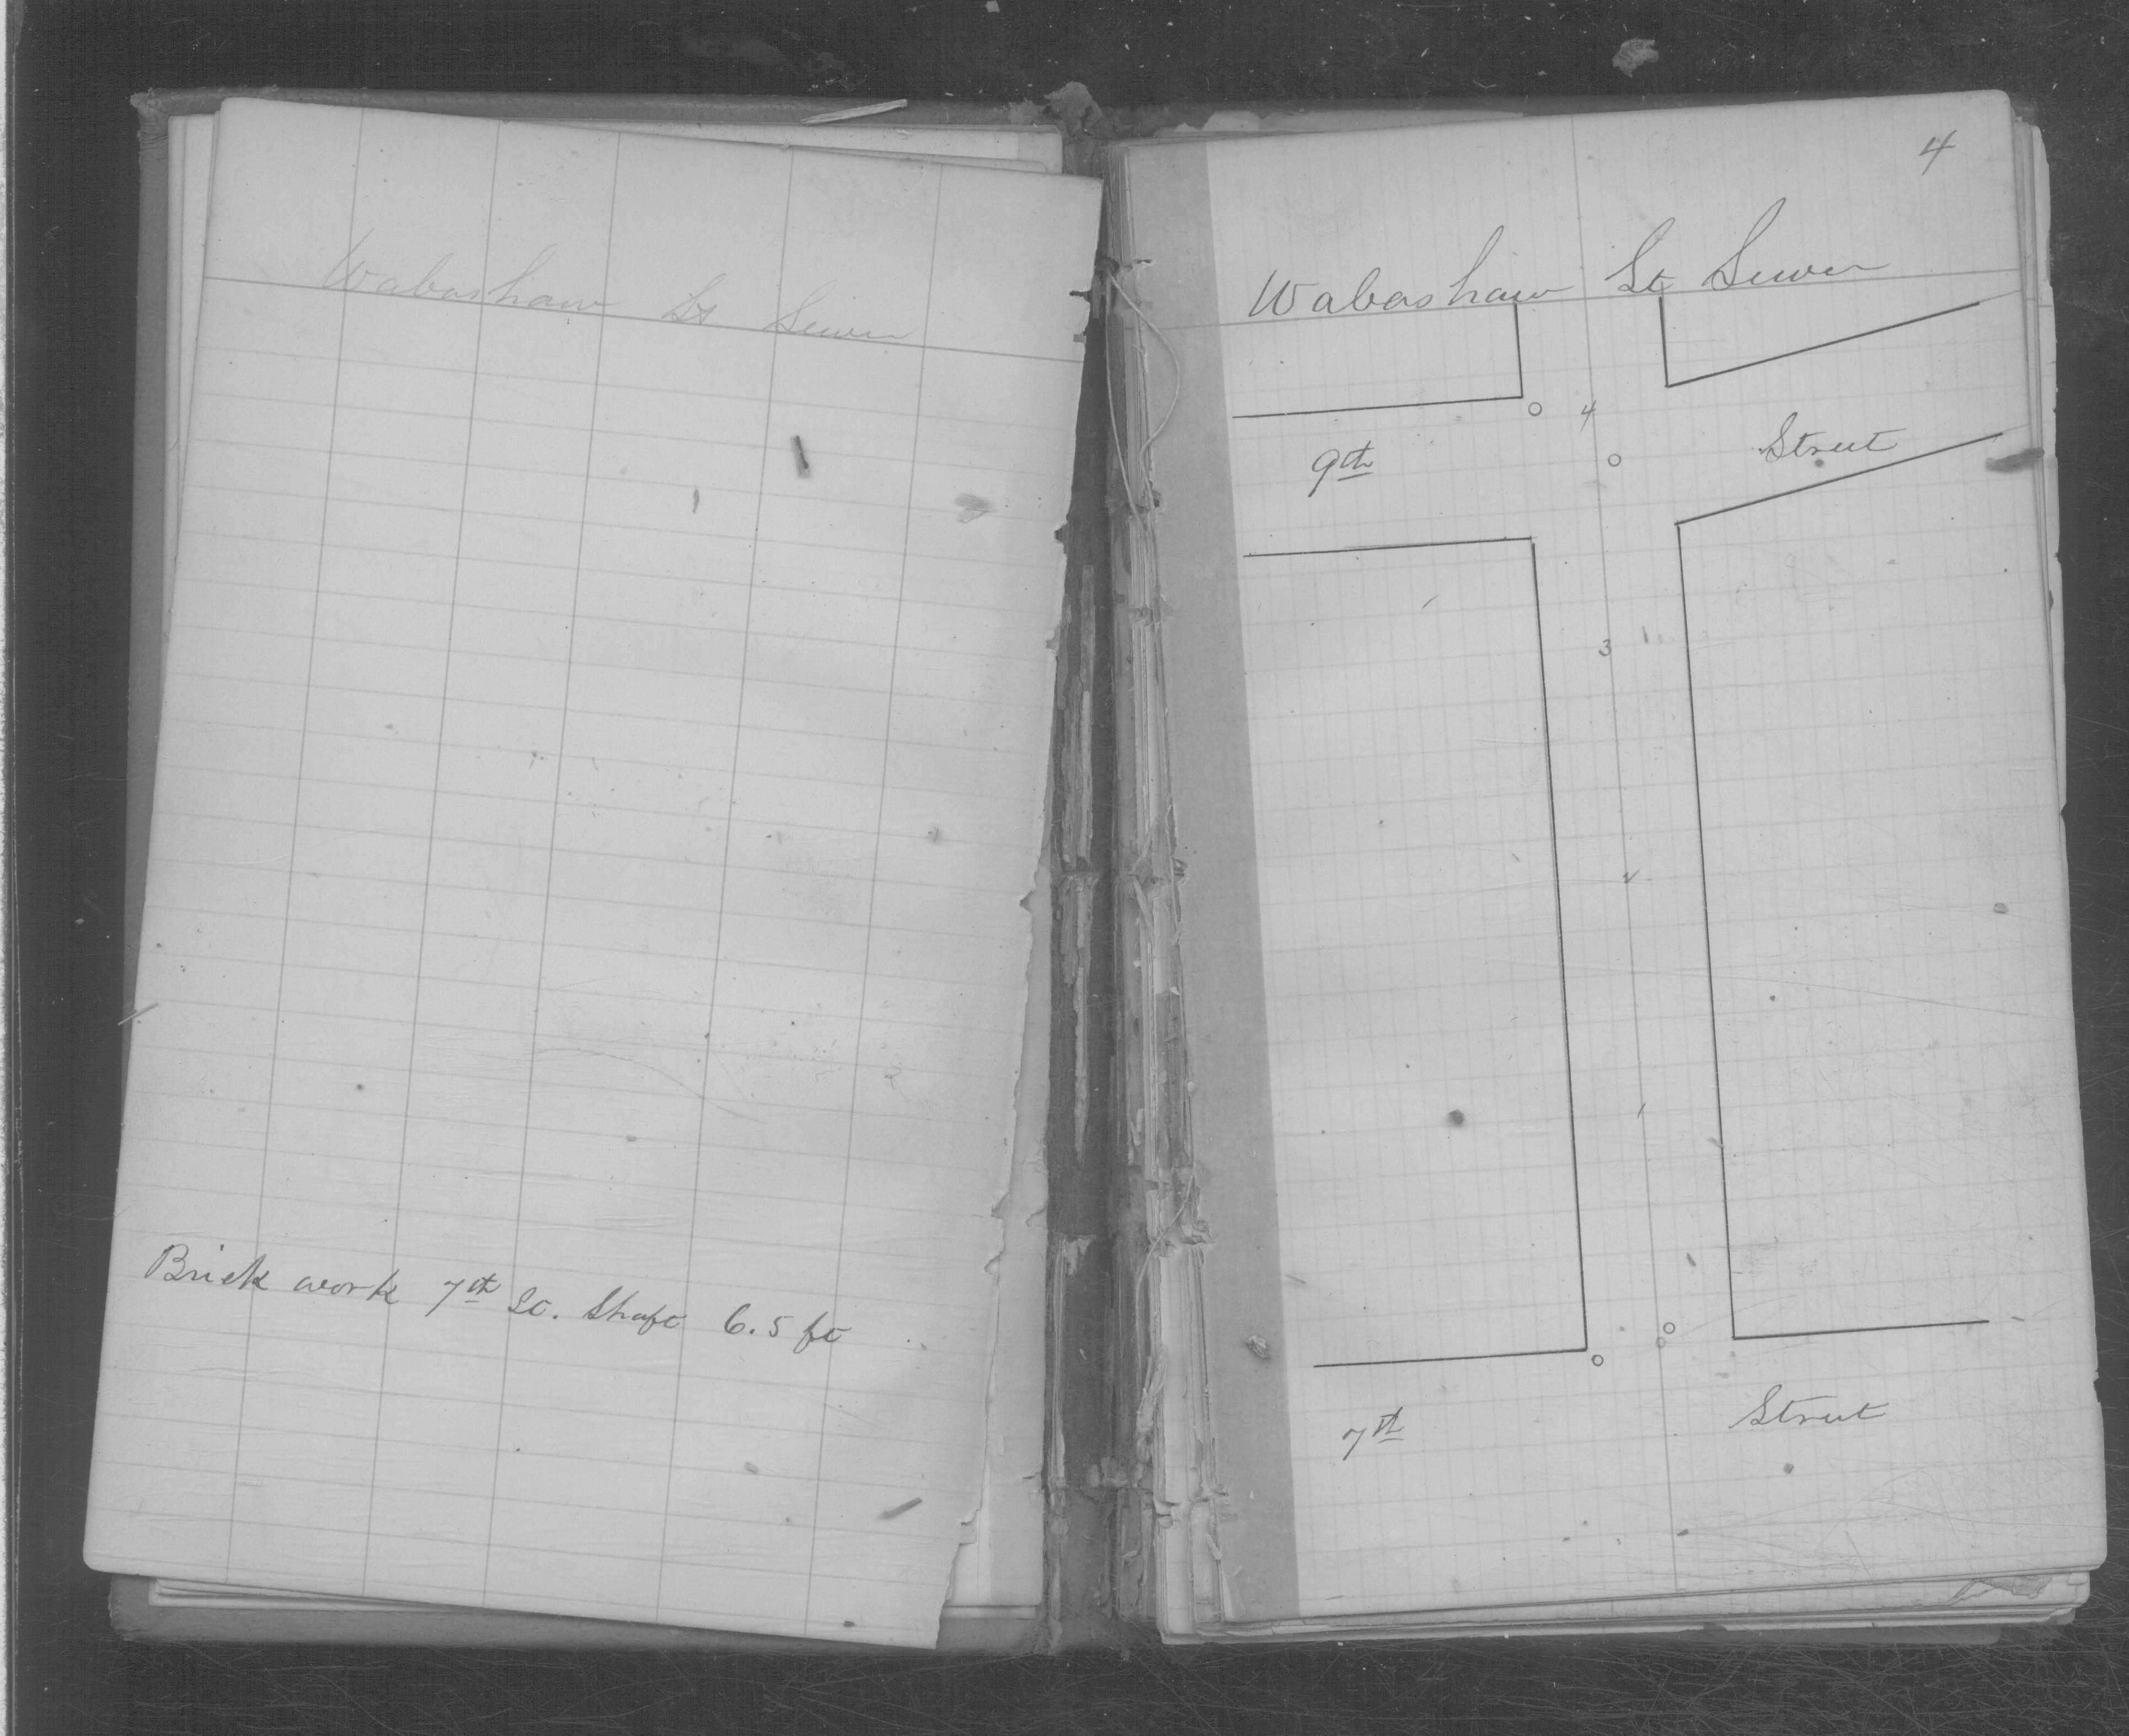 Wabashaw St Sewer
Brick work 7th St. Shaft 6.5 ft
4
Wabashaw St Sewer
4
9th Street
3
2
1
7th Street